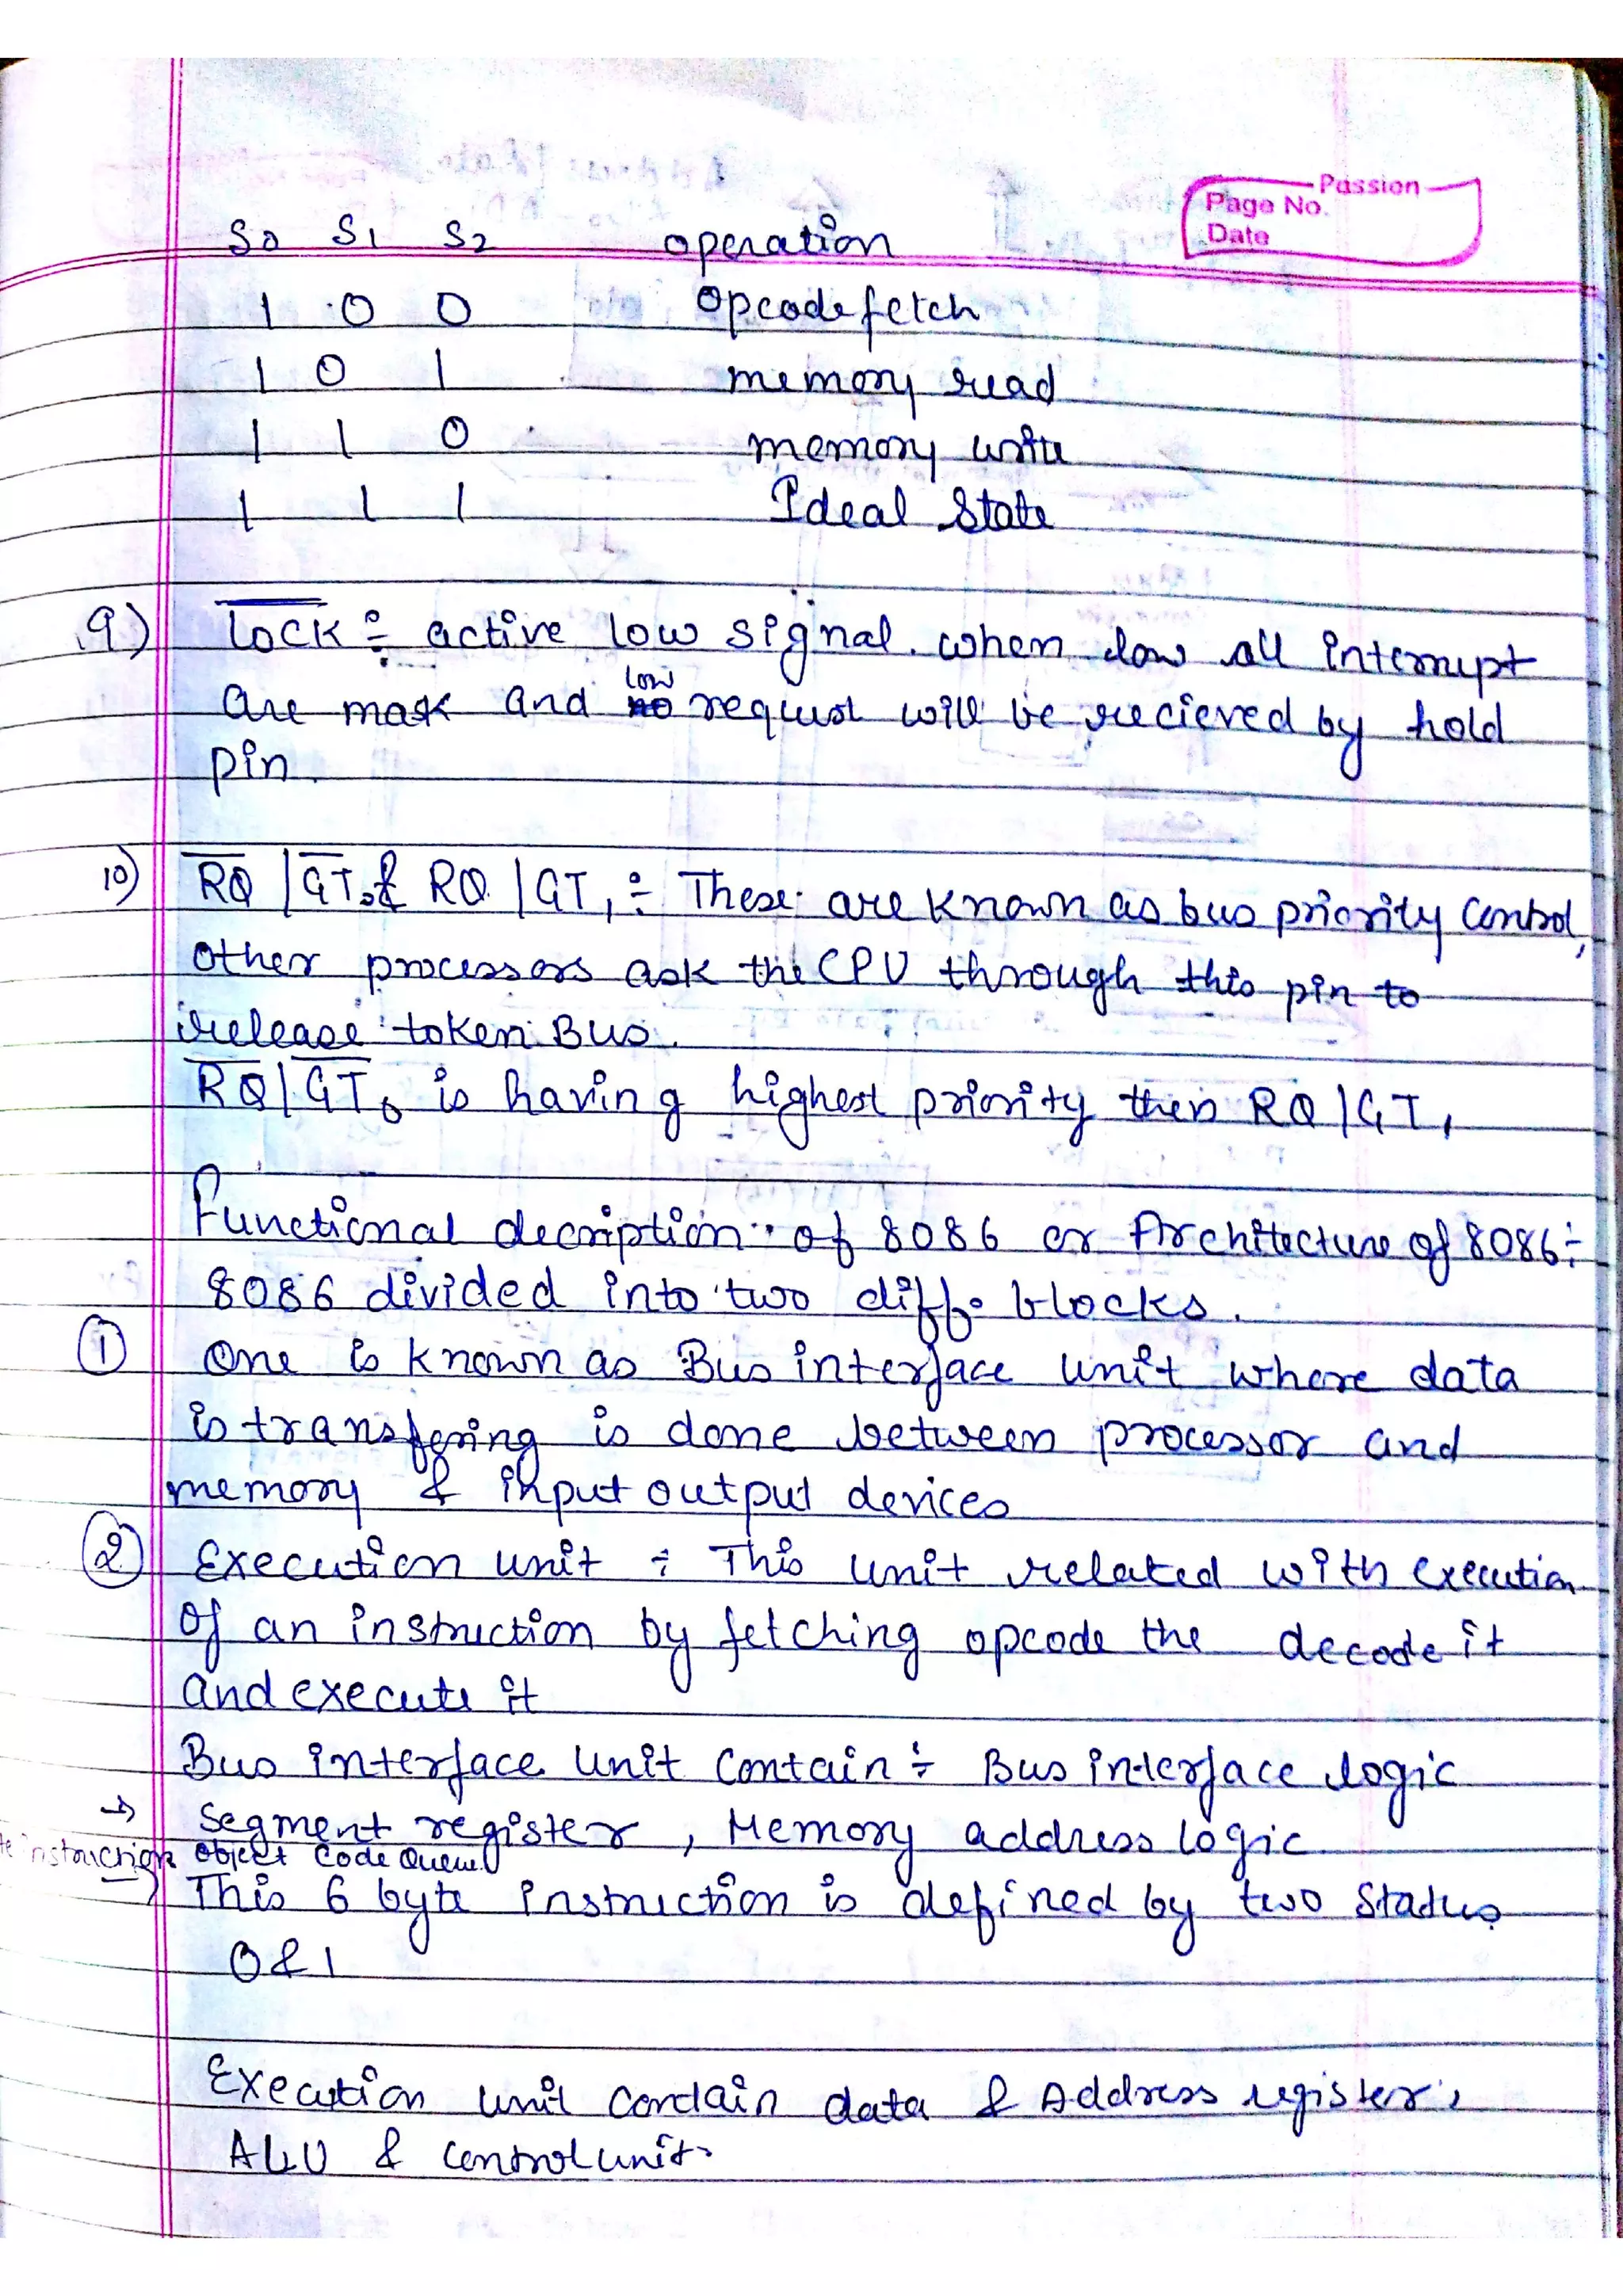 Passion
Page No.
Date
S0 S1 S2 operation
1 0 0 opcode fetch
1 0 1 memory read
1 1 0 memory write
1 1 1 Ideal State
9) LOCK ÷ active low signal. when low all interrupt
are mask and low request will be recieved by hold
pin.
10) RQ/GT0 & RQ/GT1 ÷ These are known as bus priority control,
other processors ask the CPU through this pin to
release token Bus.
RQ/GT0 is having highest priority then RQ/GT1
Functional decription of 8086 or Architecture of 8086 ÷
8086 divided into two diff. blocks.
① One is known as Bus interface unit where data
is transfering is done between processor and
memory & input output devices
② Execution unit ÷ This unit related with execution
of an instruction by fetching opcode the decode it
and execute it
Bus interface unit contain ÷ Bus interface logic
→ Segment register, Memory address logic
instruction object code Queue
This 6 byte instruction is defined by two status
0 & 1
Execution unit contain data & Address register,
ALU & control unit.